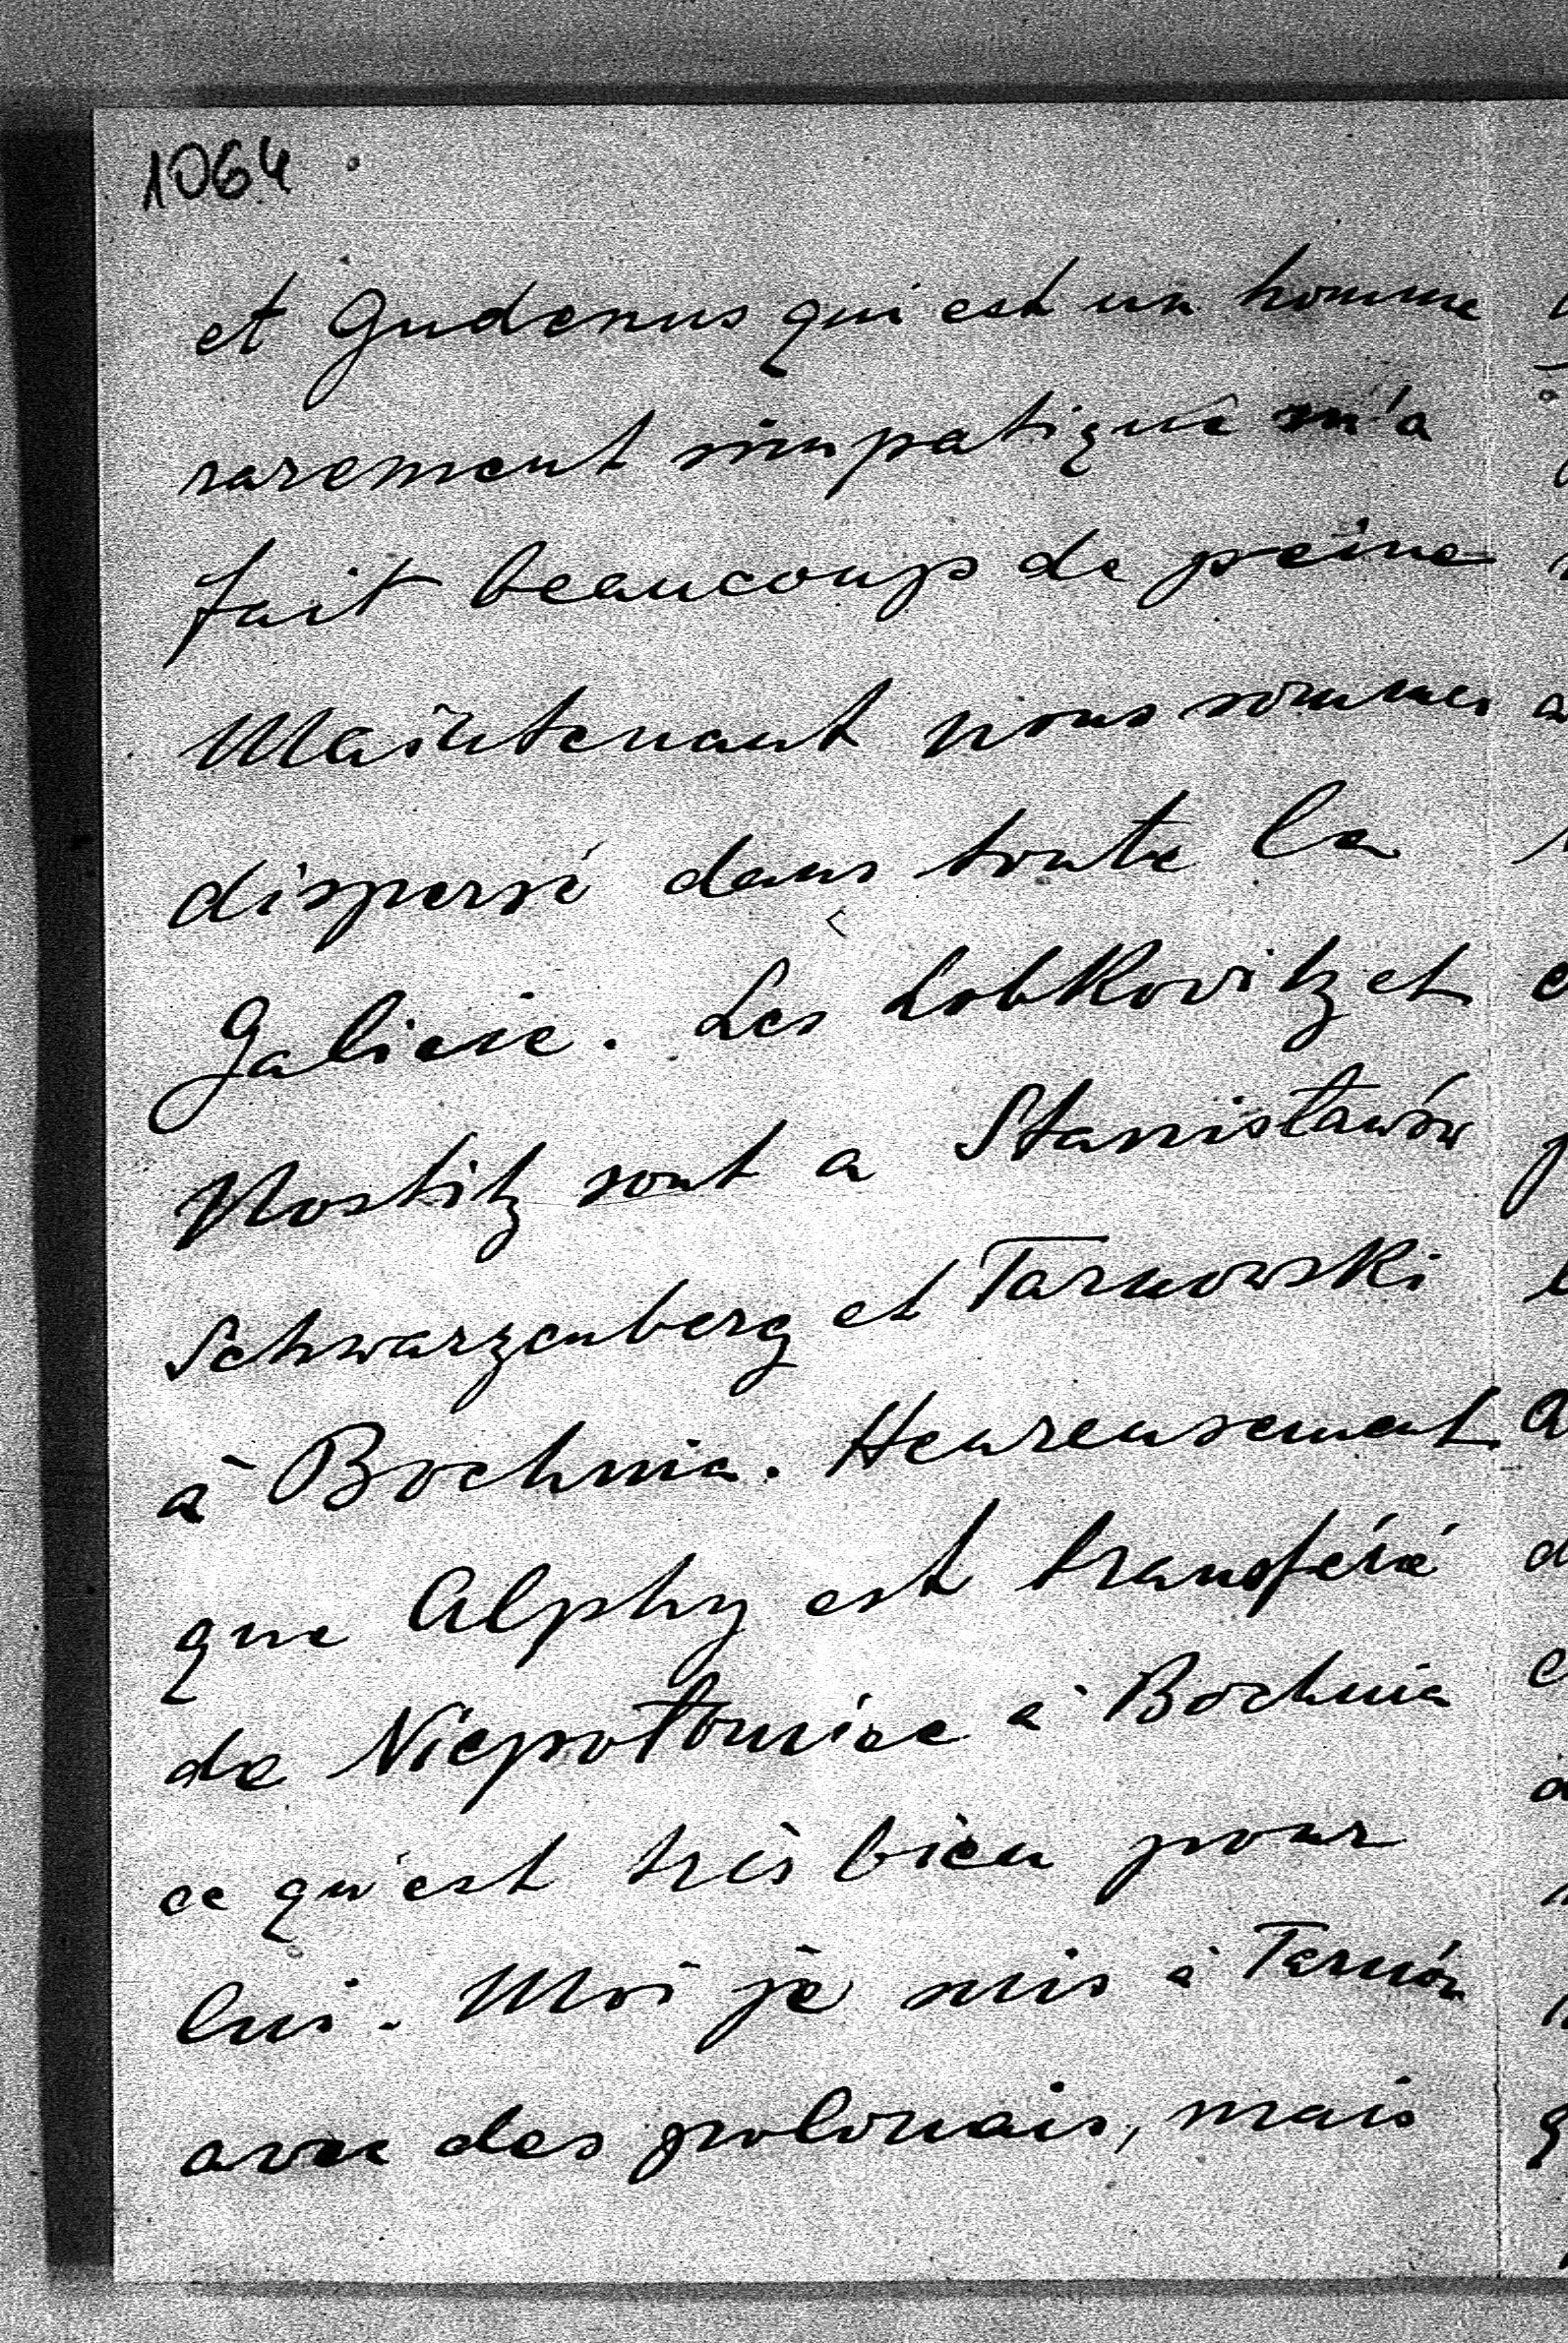 1064
et Gudenus qui est un homme
rarement simpatique m'a
fait beaucoup de peine
Maintenant nous sommes
dispersé dans toute la
Galicie. Les Lobkovitz et
Nostitz sont a Stanisławów
Schwarzenberg et Tarnowski
à Bochnia. Heureusement
que Alphy est transféré
de Niepołomice à Bochnia
ce qu'est très bien pour
lui. Moi je suis à Tarnów
avec des polonais, mais